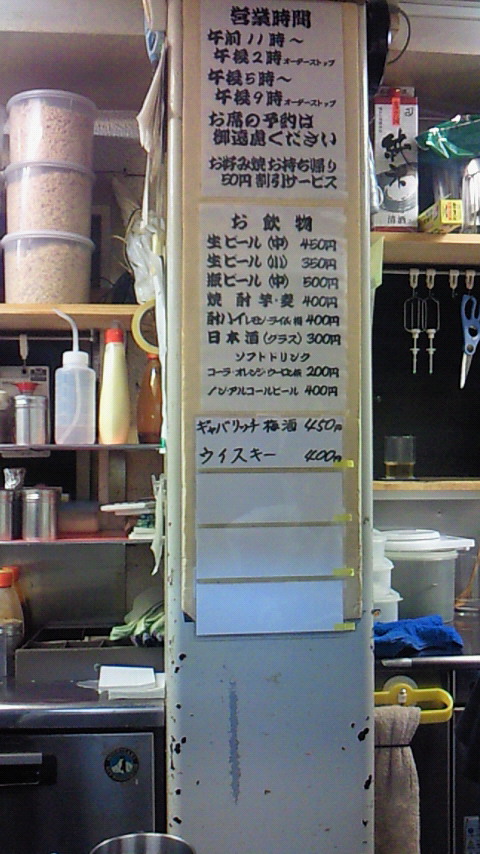 営業時間
午前11時〜
午後2時オーダーストップ
午後5時〜
午後9時オーダーストップ
お席の予約は
御遠慮ください
お好み焼お持ち帰り
50円割引サービス
お飲物
生ビール(中) 450円
生ビール(小) 350円
瓶ビール(中) 500円
焼酎 芋・麦 400円
酎ハイ レモン・ライム・梅 400円
日本酒(グラス) 300円
ソフトドリンク
コーラ・オレンジ・ウーロン茶 200円
ノンアルコールビール 400円
ギャバリッチ梅酒 450円
ウイスキー 400円
純米
清酒